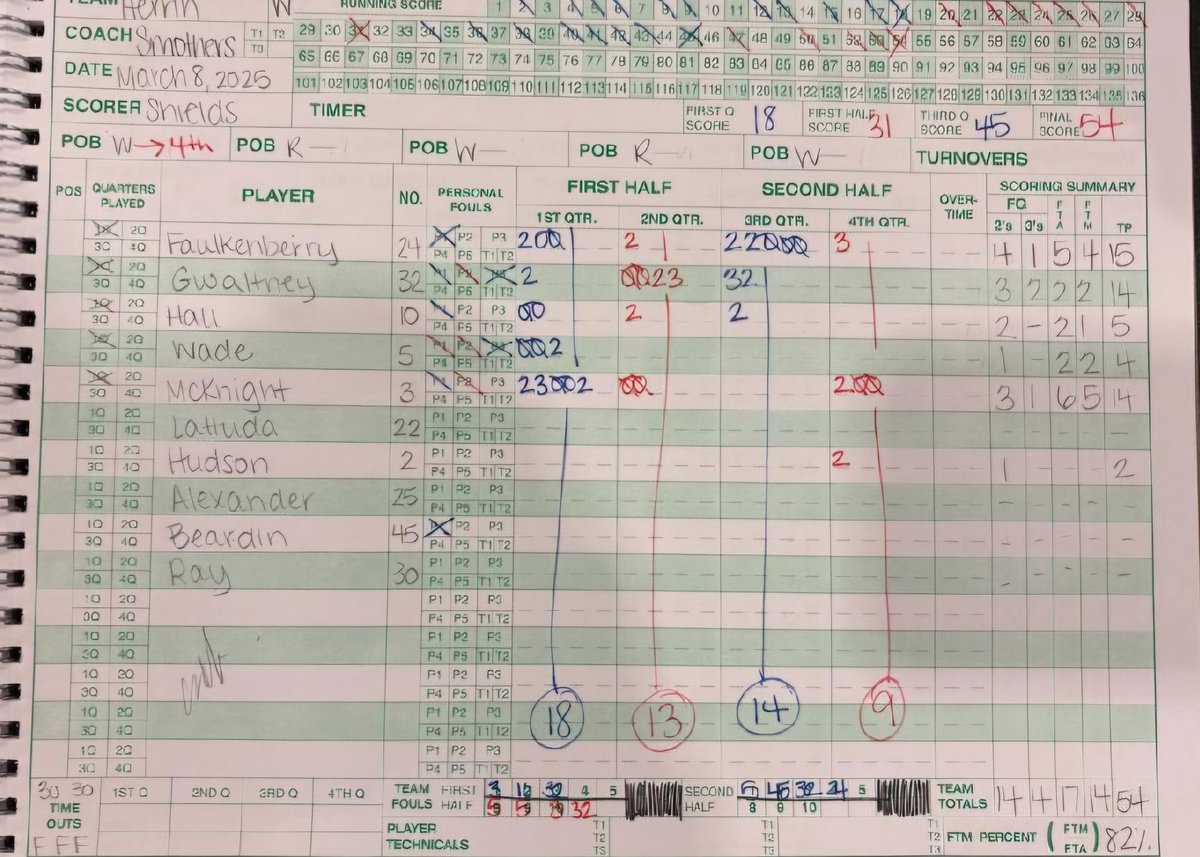 TEAM Herrin W RUNNING SCORE 1 2 3 4 5 6 7 8 9 10 11 12 13 14 15 16 17 18 19 20 21 22 23 24 25 26 27 28
COACH Smothers T1 T2 T3 29 30 31 32 33 34 35 36 37 38 39 40 41 42 43 44 45 46 47 48 49 50 51 52 53 54 55 56 57 58 59 60 61 62 63 64
65 66 67 68 69 70 71 72 73 74 75 76 77 78 79 80 81 82 83 84 85 86 87 88 89 90 91 92 93 94 95 96 97 98 99 100
DATE March 8, 2025 101 102 103 104 105 106 107 108 109 110 111 112 113 114 115 116 117 118 119 120 121 122 123 124 125 126 127 128 129 130 131 132 133 134 135 136
SCORER Shields TIMER FIRST Q SCORE 18 FIRST HALF SCORE 31 THIRD Q SCORE 45 FINAL SCORE 54
POB W→4th POB R POB W POB R POB W TURNOVERS
POS QUARTERS PLAYED PLAYER NO. PERSONAL FOULS FIRST HALF SECOND HALF OVER-TIME SCORING SUMMARY
1ST QTR. 2ND QTR. 3RD QTR. 4TH QTR. FG 2's 3's FTA FTM TP
Faulkenberry 24 P2 P3 P4 P5 T1 T2 200 2 22000 3 4 1 5 4 15
Gwaltney 32 P4 P5 T1 T2 2 0023 32 3 2 2 2 14
Hall 10 P2 P3 P4 P5 T1 T2 00 2 2 2 - 2 1 5
Wade 5 P4 P5 T1 T2 002 1 2 2 4
McKnight 3 P3 P4 P5 T1 T2 23002 00 200 3 1 6 5 14
1Q 2Q 3Q 4Q LaHuda 22 P1 P2 P3 P4 P5 T1 T2
1Q 2Q 3Q 4Q Hudson 2 P1 P2 P3 P4 P5 T1 T2 2 1 2
1Q 2Q 3Q 4Q Alexander 25 P1 P2 P3 P4 P5 T1 T2 - -
1Q 2Q 3Q 4Q Beardin 45 P2 P3 P4 P5 T1 T2 - -
1Q 2Q 3Q 4Q Ray 30 P1 P2 P3 P4 P5 T1 T2 - -
1Q 2Q 3Q 4Q P1 P2 P3 P4 P5 T1 T2
1Q 2Q 3Q 4Q P1 P2 P3 P4 P5 T1 T2
1Q 2Q 3Q 4Q P1 P2 P3 P4 P5 T1 T2
1Q 2Q 3Q 4Q P1 P2 P3 P4 P5 T1 T2 18 13 14 9
1Q 2Q 3Q 4Q P1 P2 P3 P4 P5 T1 T2
30 30 TIME OUTS FFF 1ST Q 2ND Q 3RD Q 4TH Q TEAM FOULS FIRST HALF 4 5 32 SECOND HALF 45 32 24 5 8 9 10 TEAM TOTALS 14 4 17 14 54
PLAYER TECHNICALS T1 T2 T3 T1 T2 T3 T1 T2 T3 FTM PERCENT (FTM FTA) 82%